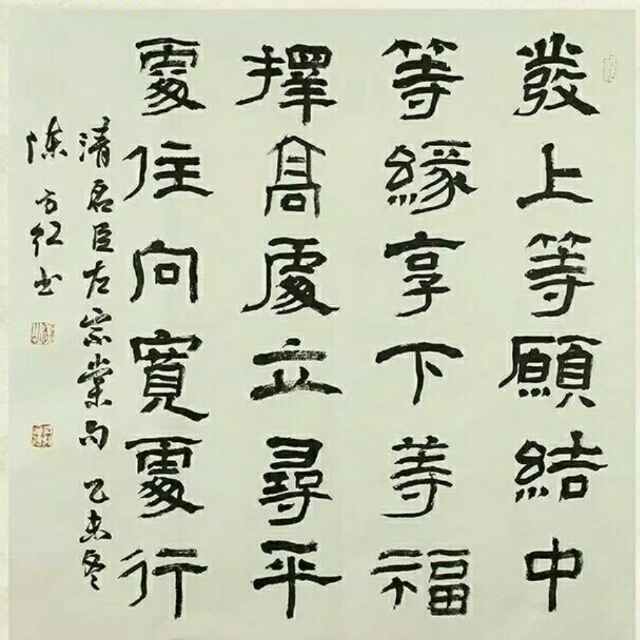 發上等願結中
等緣享下等福
擇高處立尋平
處住向寬處行
清名臣左宗棠句 乙未冬
陳方紅书